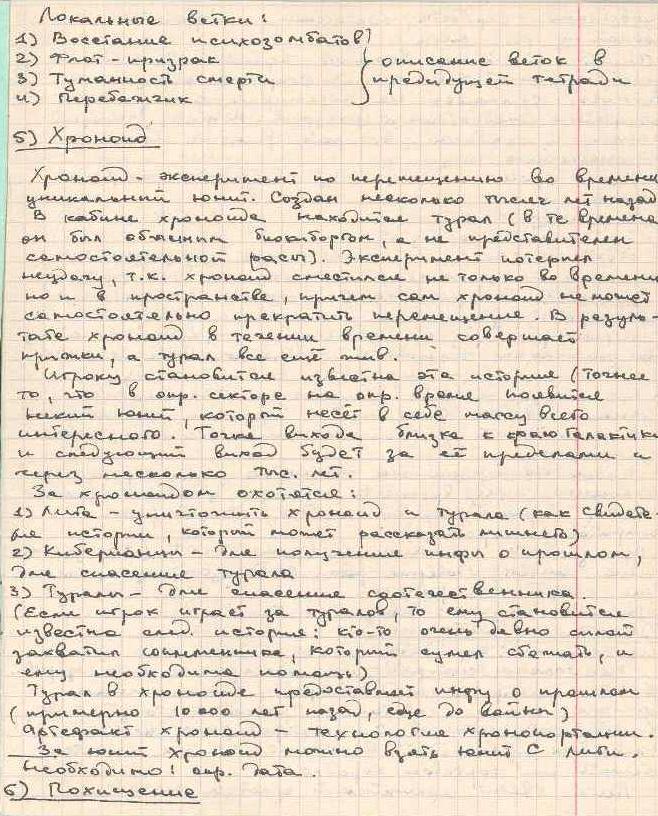 Локальные ветки:
1) Восстание психозомбатов
2) Флот-призрак
описание веток в
3) Туманность смерти
предидущей тетради
4) Перебежчик
5) Хроноид
Хроноид - эксперимент по перемещению во времени
уникальный юнит. Создан несколько тысяч лет назад
В кабине хроноида находится турал (в те времена
он был обычным биокиборгом, а не представителем
самостоятельной расы). Эксперимент потерпел
неудачу, т.к. хроноид сместился не только во времени
но и в пространстве, причем сам хроноид не может
самостоятельно прекратить перемещение. В резуль-
тате хроноид в течении времени совершает
прыжки, а турал все ещё жив.
Игроку становится известна эта история (точнее
то, что в опр. секторе на опр. время появится
некий юнит, который несёт в себе массу всего
интересного. Точка выхода близка к краю галактики
и следующий выход будет за её пределами и
через несколько тыс. лет.
За хроноидом охотятся:
1) Лига - уничтожить хроноид и турала (как свидете-
ля истории, который может рассказать лишнего)
2) Киберианцы - для получения инфы о прошлом,
для спасения турала
3) Туралы - для спасения соотечественника.
(Если игрок играет за туралов, то ему становится
известна след. история: кто-то очень давно силой
захватил соплеменника, который сумел сбежать, и
ему необходима помощь)
Турал в хроноиде предоставляет инфу о прошлом
(примерно 10 000 лет назад, еще до войны)
Артефакт хроноид - технология хронопортации.
За юнит хроноид можно взять юнит С лиги.
Необходимо: опр. дата.
6) Похищение